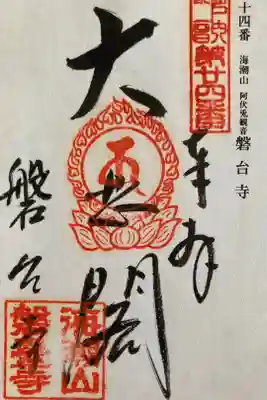 十四番 海潮山 阿伏兎観音 磐台寺
第廿四番
奉拝
大悲閣
磐台寺
海潮山
磐台寺